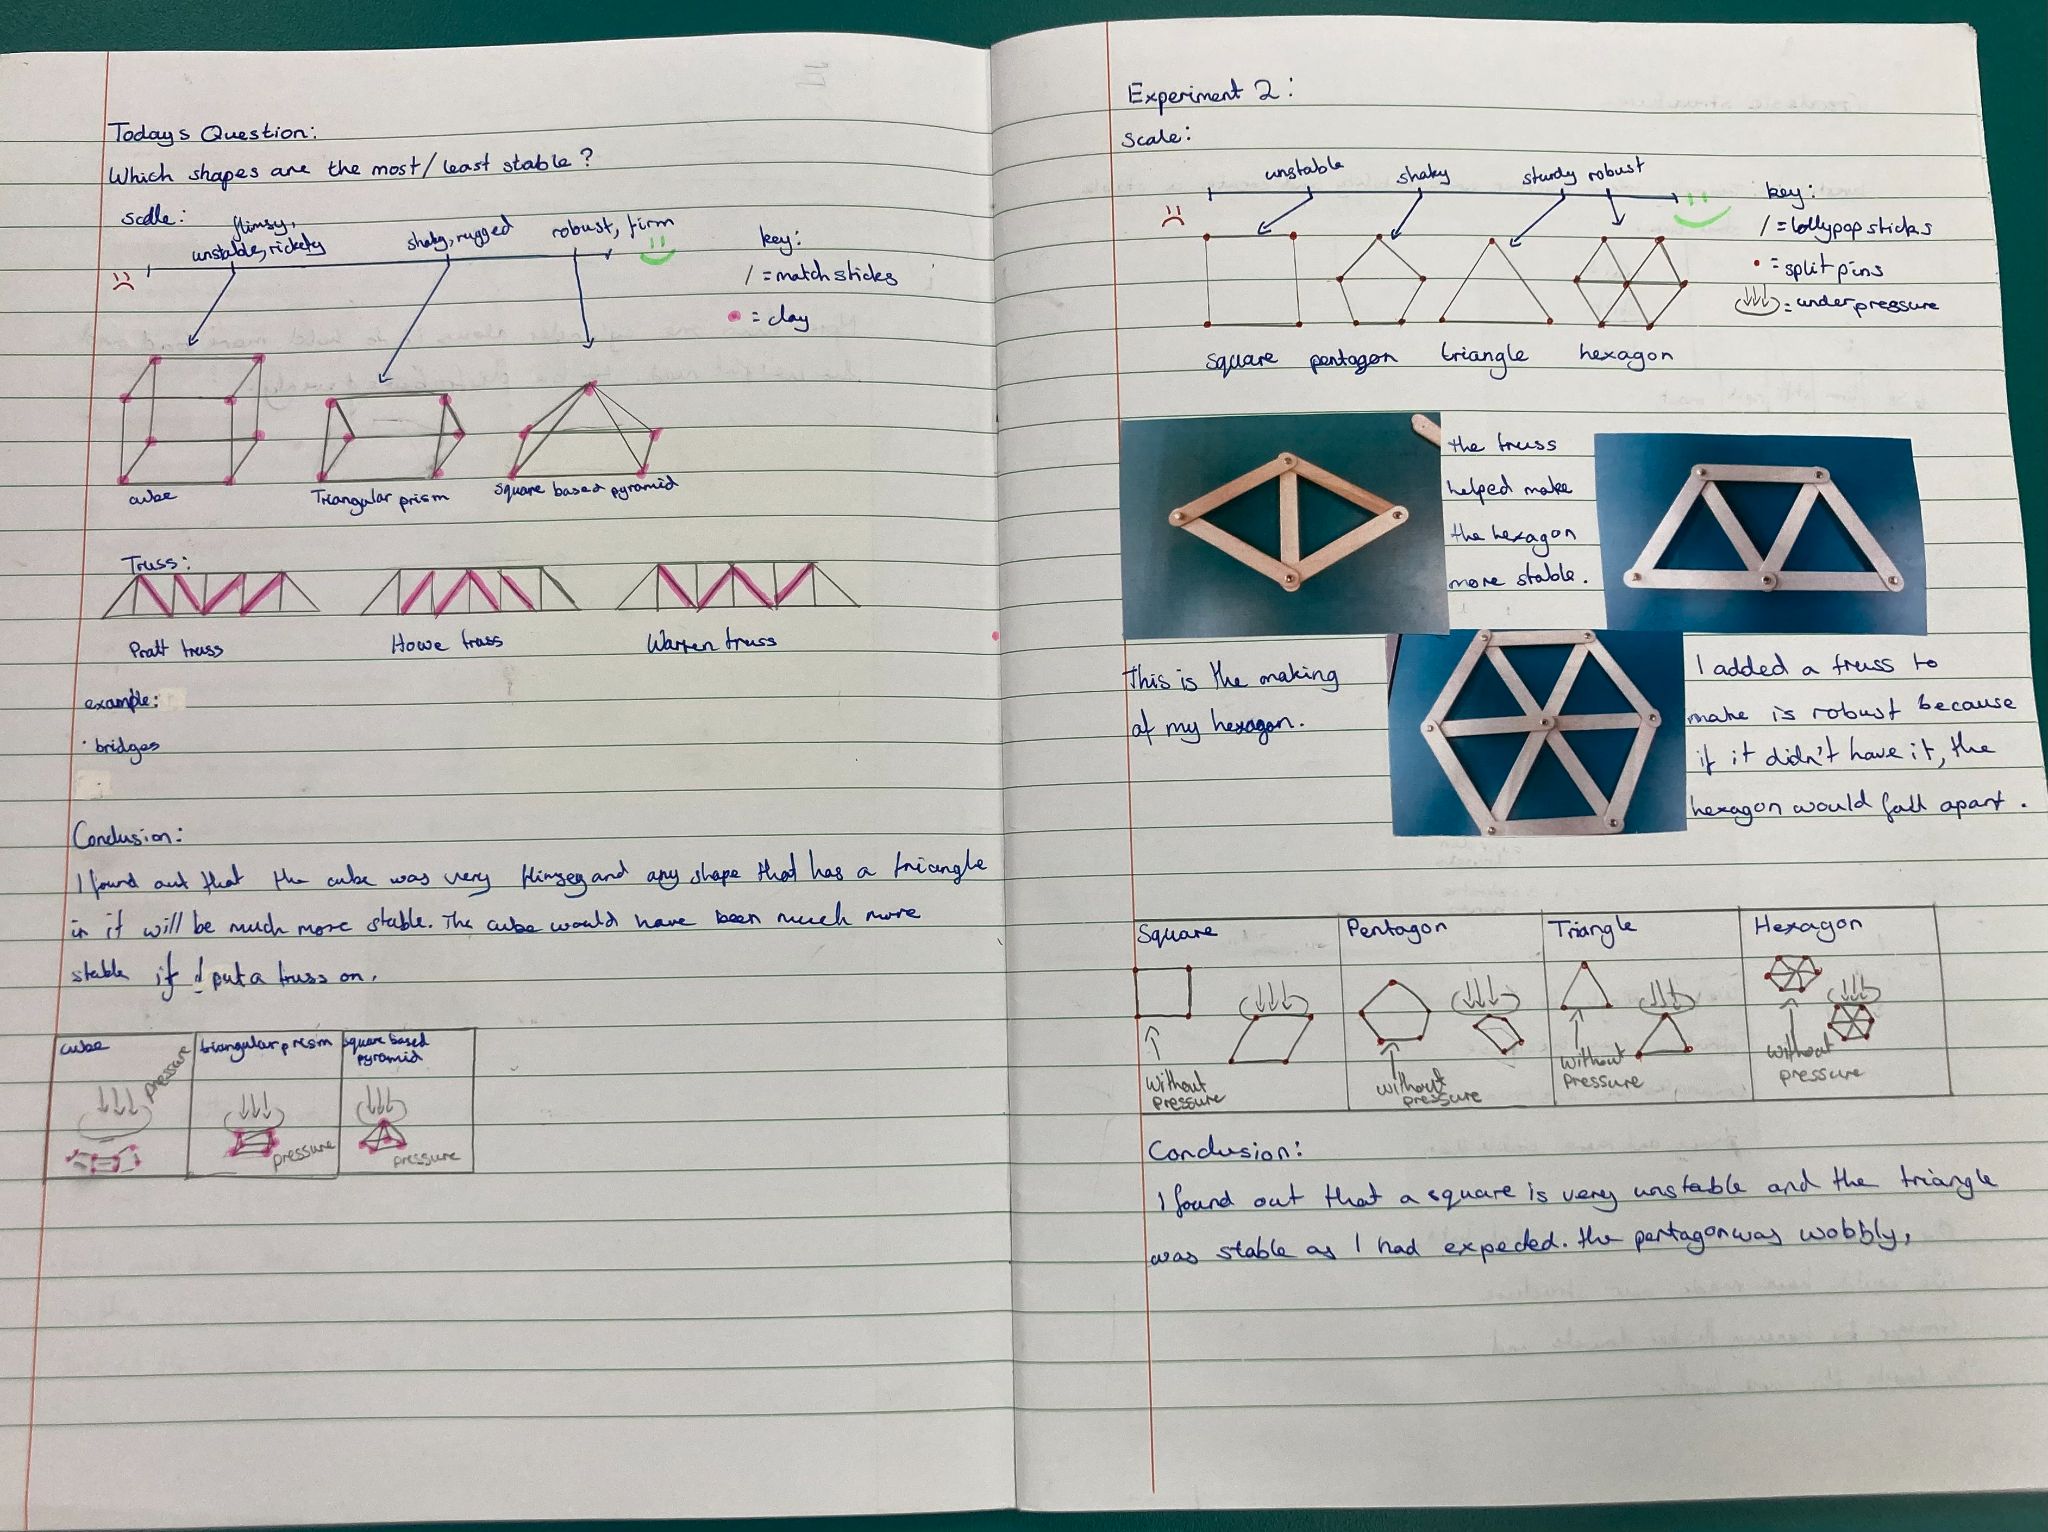 Todays Question:
Which shapes are the most/least stable?
scale:
flimsy,
unstable, rickety
shaky, rugged
robust, firm
key:
/ = match sticks
= clay
cube
Triangular prism
square based pyramid
Truss:
Pratt truss
Howe truss
Warren truss
example:
· bridges
Conclusion:
I found out that the cube was very flimsey and any shape that has a triangle
in it will be much more stable. The cube would have been much more
stable if I put a truss on.
cube
pressure
triangular prism
pressure
square based
pyramid
pressure
Experiment 2:
scale:
unstable
shaky
sturdy
robust
key:
/ = lollypop sticks
• = split pins
= under pressure
square
pentagon
triangle
hexagon
the truss
helped make
the hexagon
more stable.
This is the making
of my hexagon.
I added a truss to
make is robust because
if it didn't have it, the
hexagon would fall apart.
Square
without
pressure
Pentagon
without
pressure
Triangle
without
pressure
Hexagon
without
pressure
Conclusion:
I found out that a square is very unstable and the triangle
was stable as I had expected. the pentagon was wobbly,